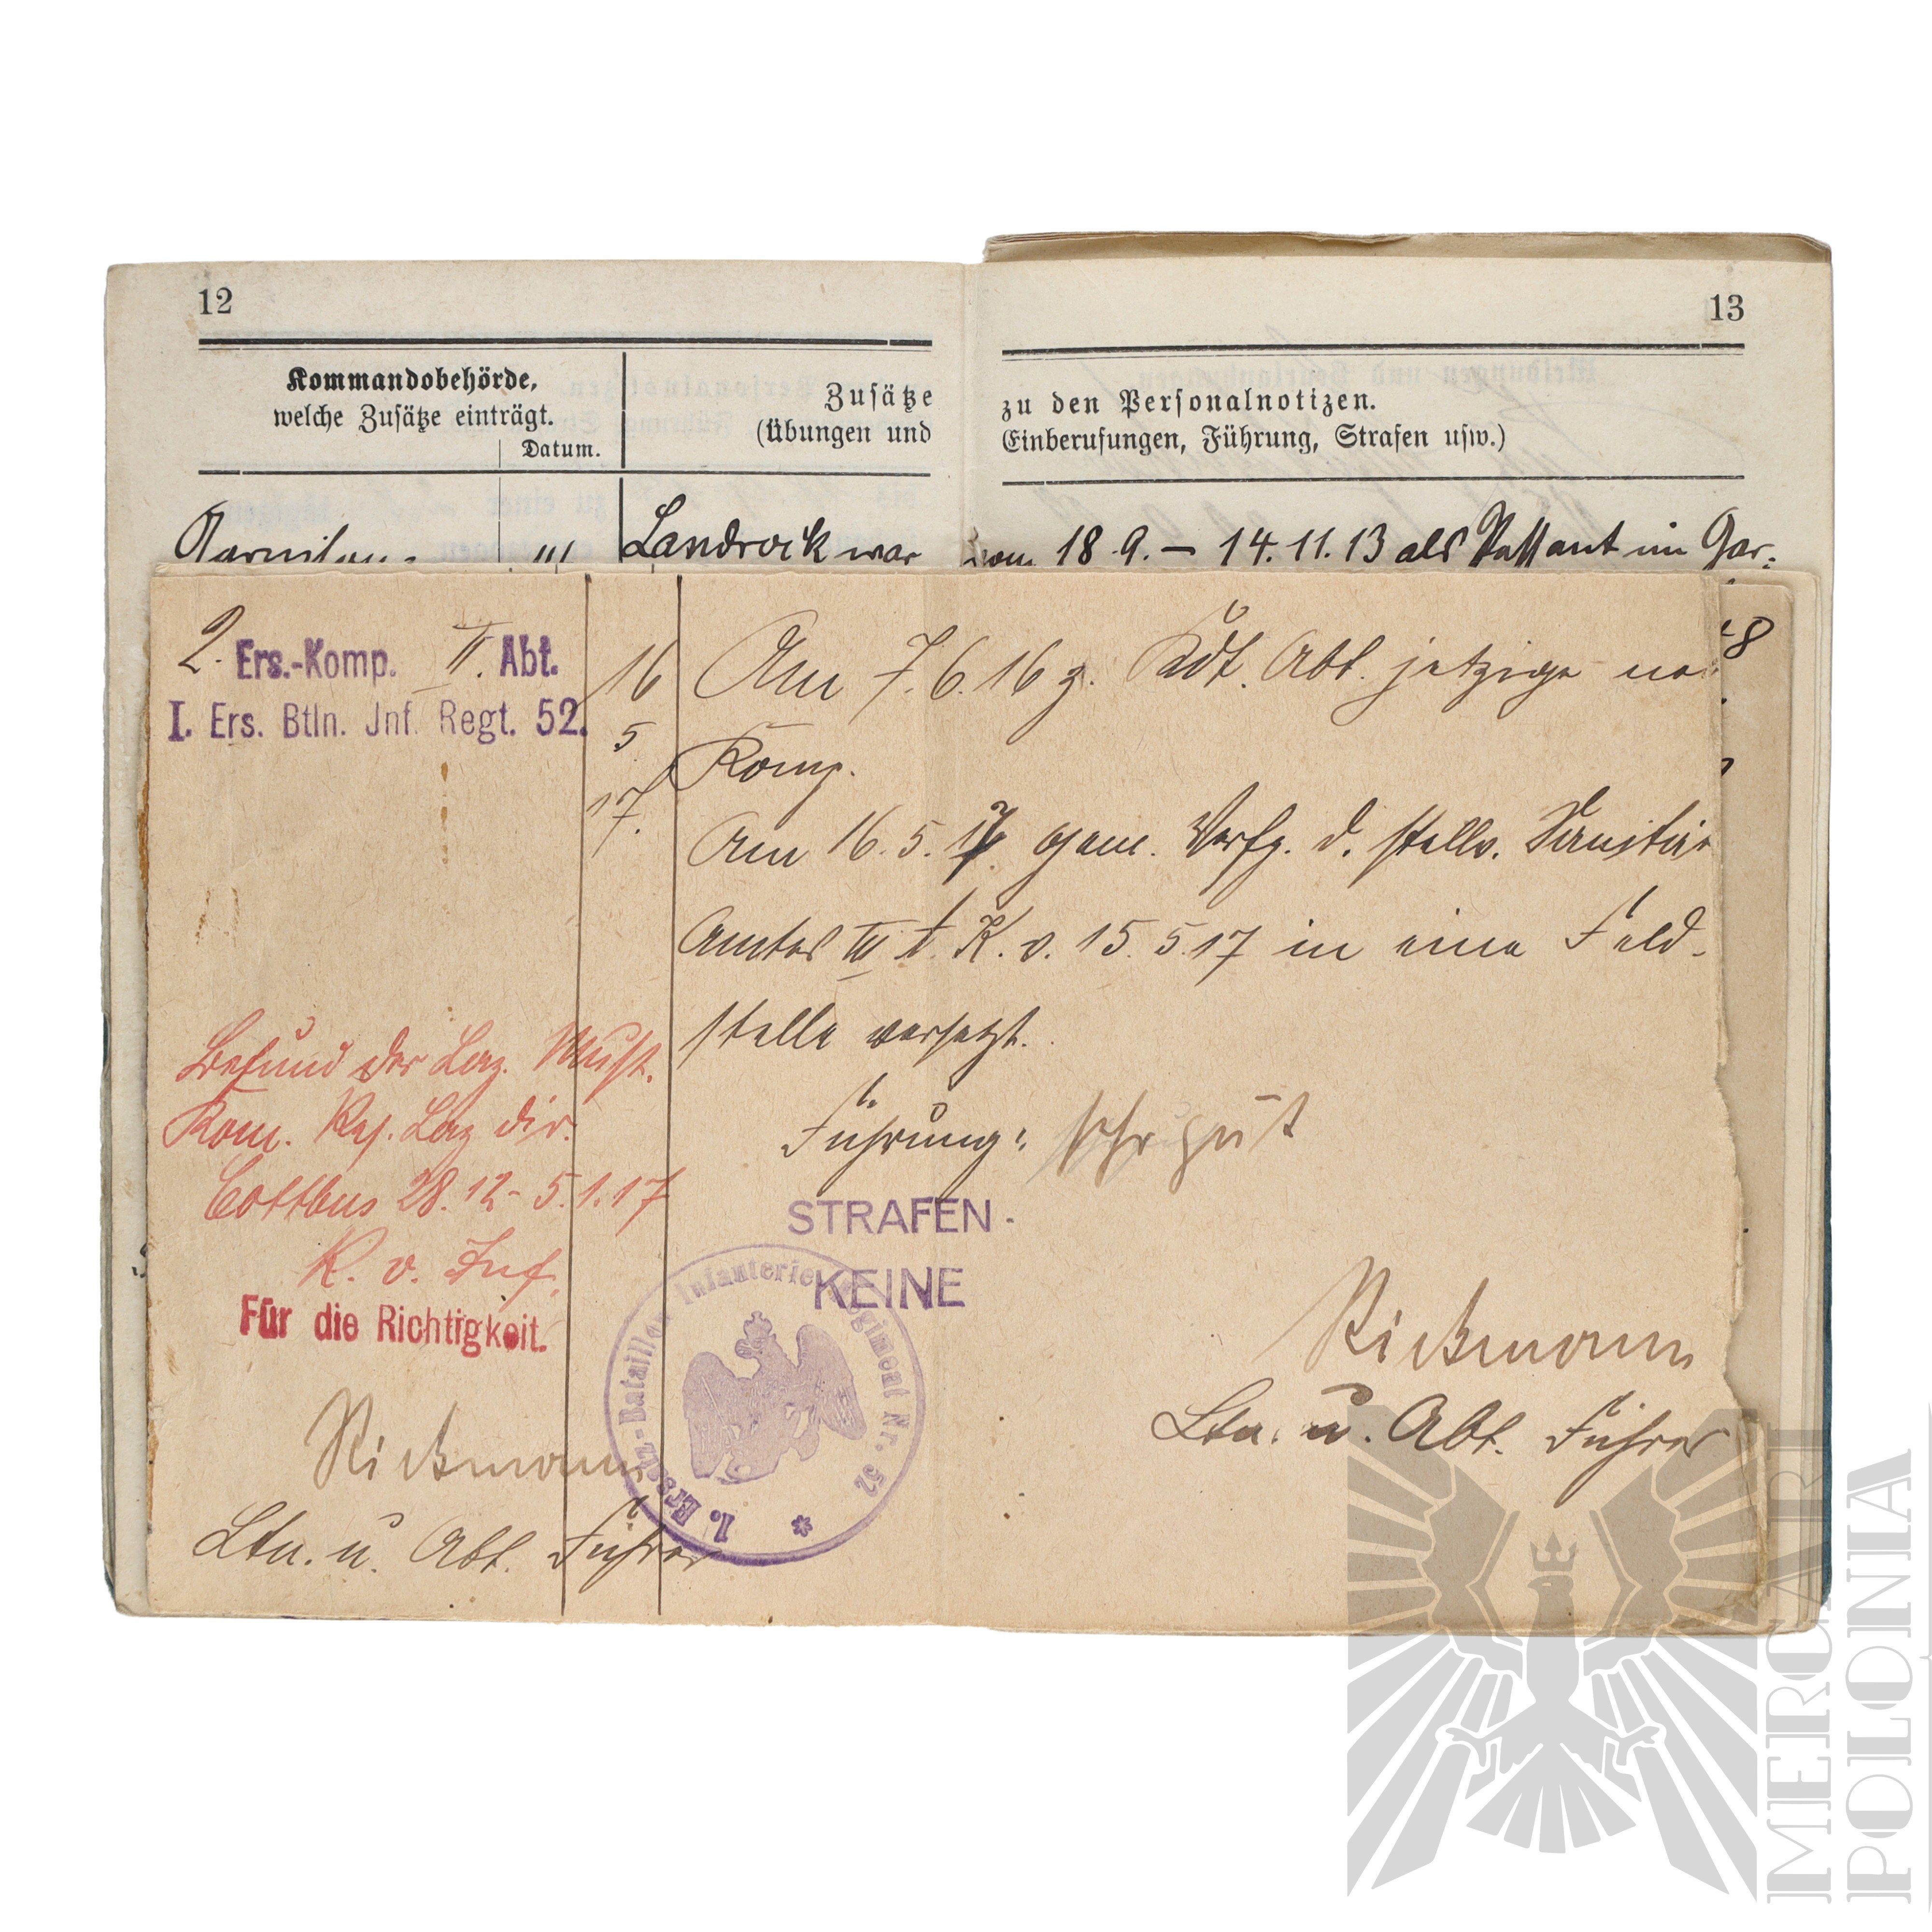 12
13
Kommandobehörde,
welche Zusätze einträgt.
Datum.
Zusätze
(Übungen und
zu den Personalnotizen.
Einberufungen, Führung, Strafen usw.)
Landrock war
vom 18.9. – 14.11.13 als Passant im Gar-
2. Ers.-Komp. II. Abt.
I. Ers. Btln. Jnf. Regt. 52.
16
5
17.
Am 7.6.16 z. Abt. jetzige
Komp.
Am 16.5.17 gem. Verfg. d. stellv. Sanitäts
Amtes III A. K. v. 15.5.17 in eine Feld-
stelle versetzt.
Führung: sehr gut
STRAFEN.
KEINE
Befund der Laz. Must.
Kom. Res. Laz dir.
Cottbus 28.12-5.1.17
K. v. Inf.
Für die Richtigkeit.
Ltn. u. Abt. Führer
Ltn. u. Abt. Führer
I. Ersatz-Bataillon Infanterie-Regiment Nr. 52
MERCARI
POLONIA